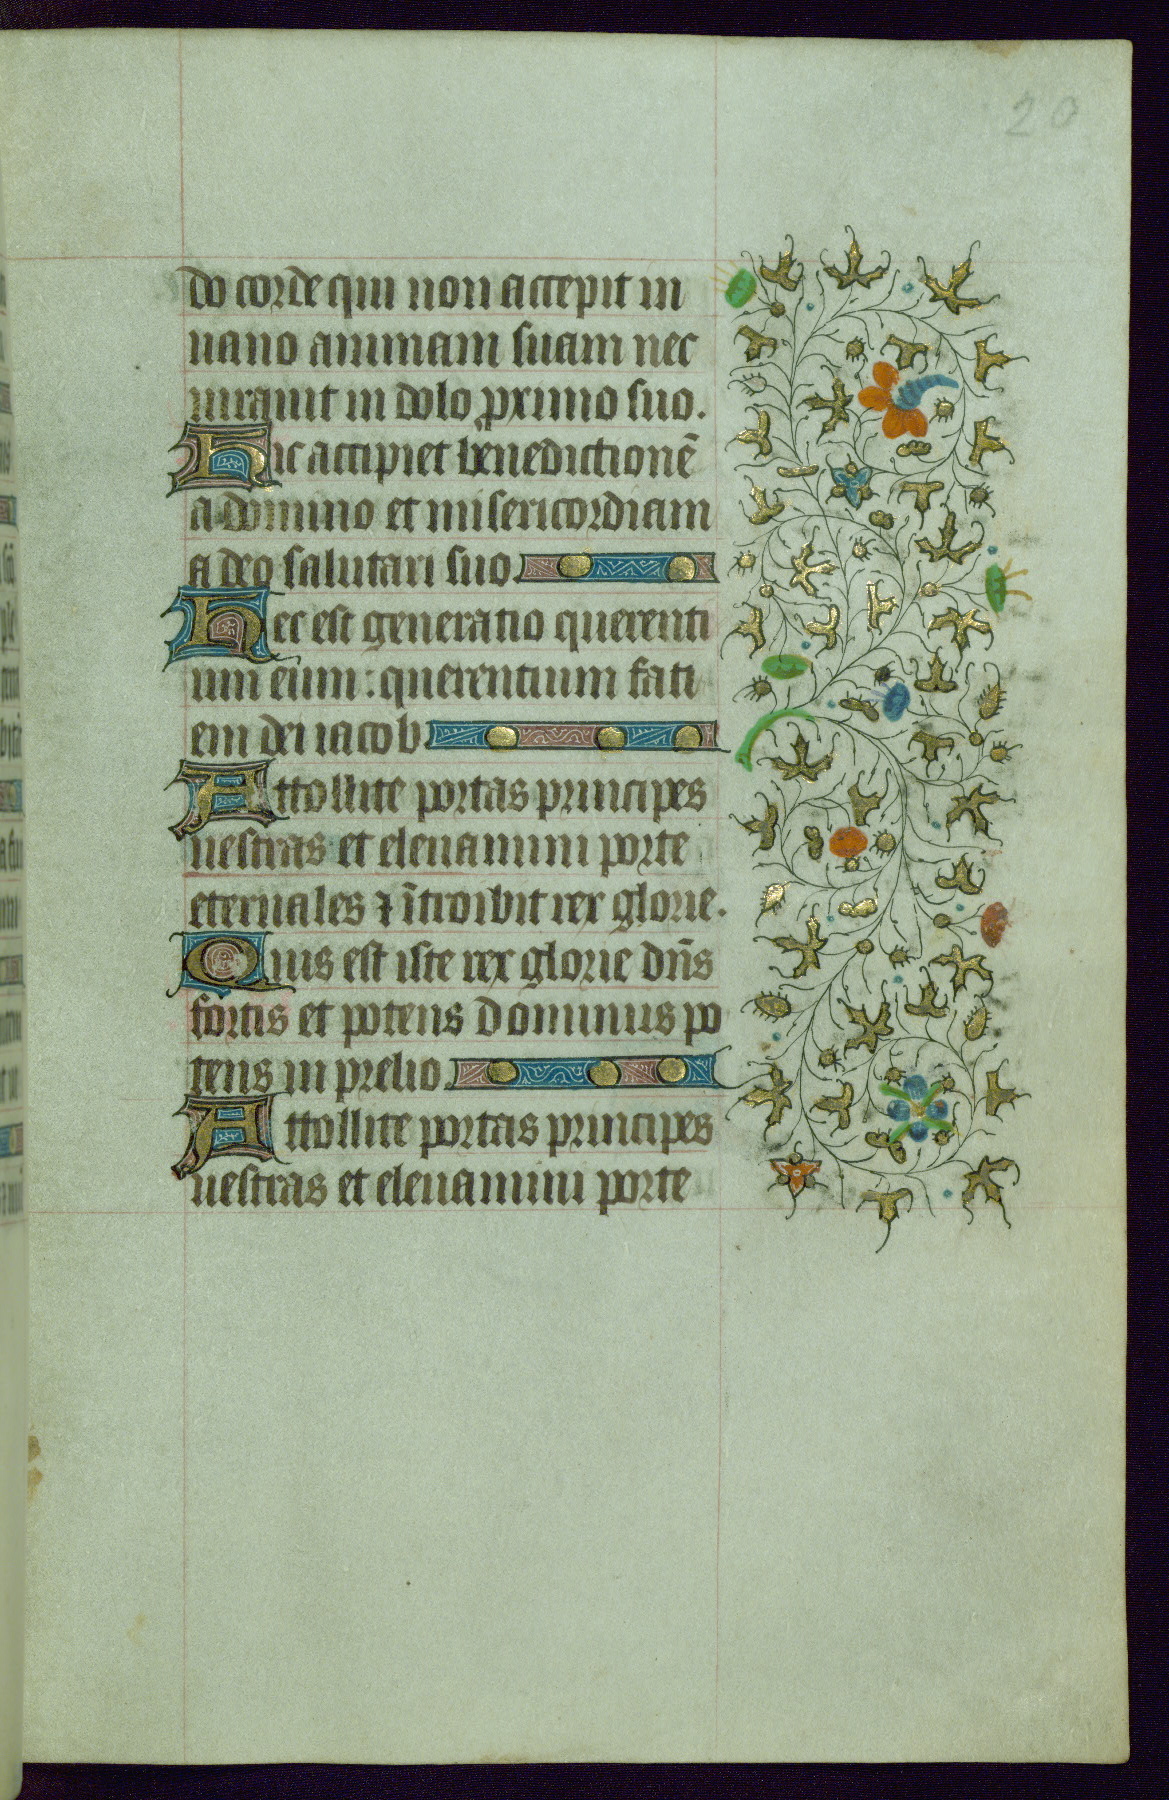 20
do corde qui non accepit in
uano animam suam nec
iurauit in dolo pximo suo.
Hic accipiet benedictionē
a domino et misericordiam
a deo salutari suo
Hec est generatio querenti
um eum : querentium faci
em dei iacob
Attollite portas principes
uestras et eleuamini porte
eternales ⁊ ītroibit rex glorie.
Quis est iste rex glorie dn̄s
fortis et potens Dominus po
tens in prelio
Attollite portas principes
uestras et eleuamini porte